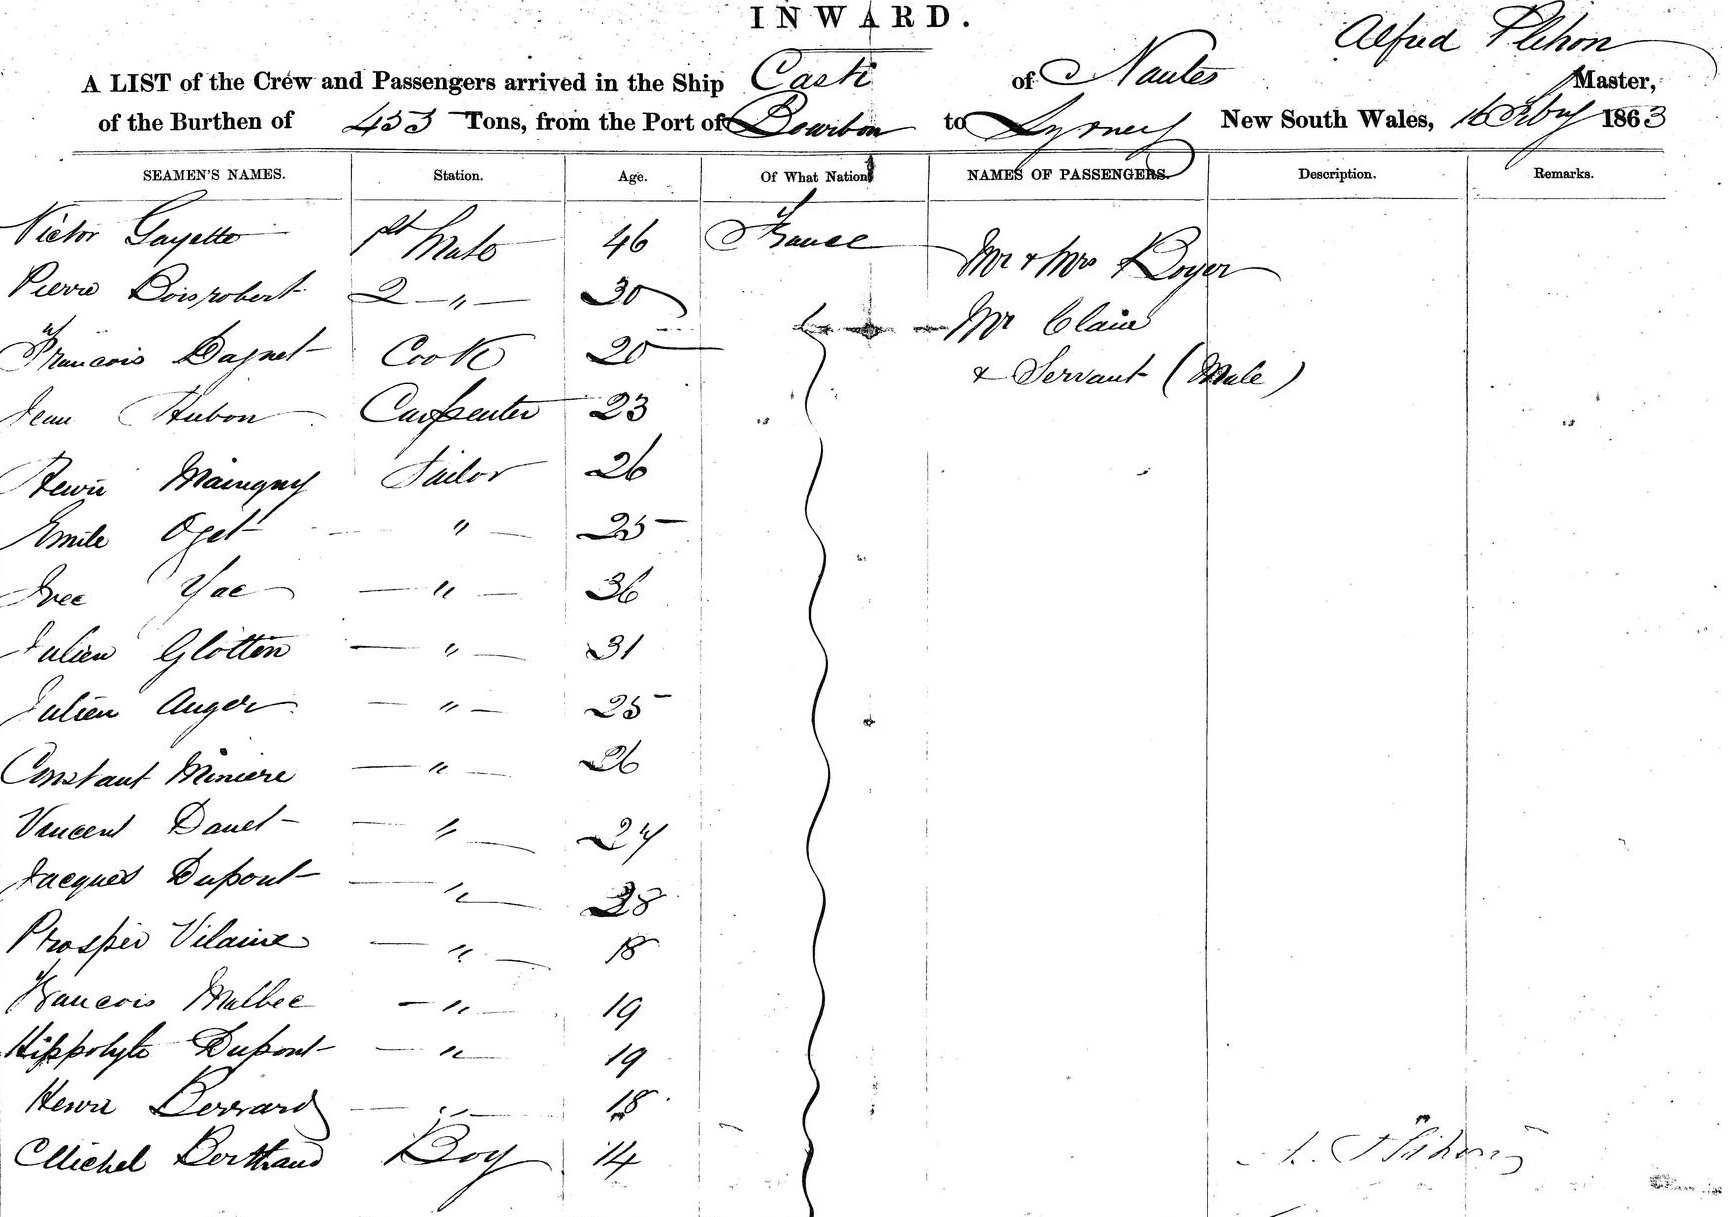 INWARD.
Alfred Plihon
A LIST of the Crew and Passengers arrived in the Ship Casti of Nantes Master,
of the Burthen of 453 Tons, from the Port of Bourbon to Sydney New South Wales, 16 Feby 1863
SEAMEN'S NAMES. Station. Age. Of What Nation NAMES OF PASSENGERS. Description. Remarks.
Victor Gayette 1st Mate 46 France Mr & Mrs Boyer
Pierre Boisrobert 2 〃 30
Mr Claire
Francois Dagnet Cook 25
& Servant (Male)
Jean Hubon Carpenter 23
Henri Maingny Sailor 26
Emile Oget 〃 25
Yac 〃 36
Julien Glottin 〃 31
Julien Auger 〃 25
Constant Miniere 〃 26
Vincent Danet 〃 24
Jacques Dupont 〃 28
Prosper Vilaine 〃 18
Francois Malbec 〃 19
Hippolyte Dupont 〃 19
Henri Berrard 〃 18
Michel Berthaud Boy 14